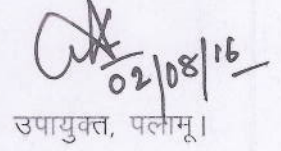 02/08/16
उपायुक्त, पलामू।